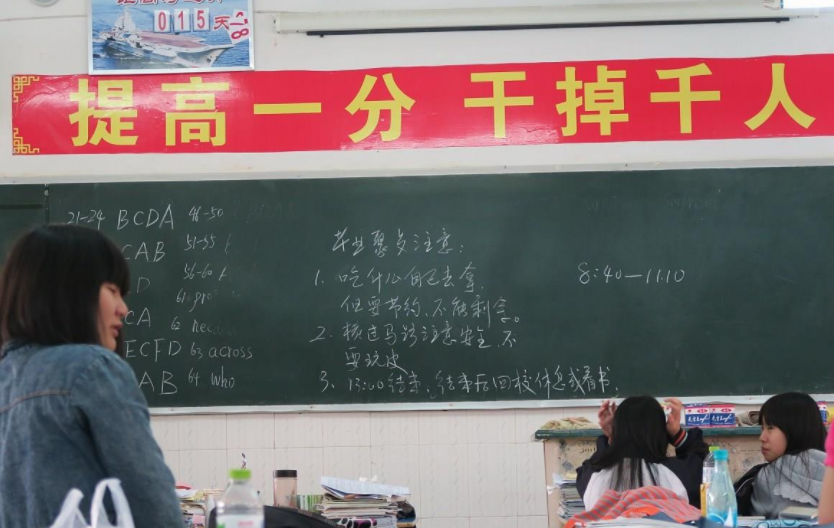 015天
提高一分 干掉千人
21-24 BCDA 46-50
CAB 51-55
D 56-60
CA 62
ECFD 63 across
AB 64 who
毕业聚食注意:
1. 吃什么自己去拿,
但要节约,不能剩拿。
2. 横过马路注意安全,不
要玩皮
3. 13:00结束,结束后回校休息或看书.
8:40—11:10